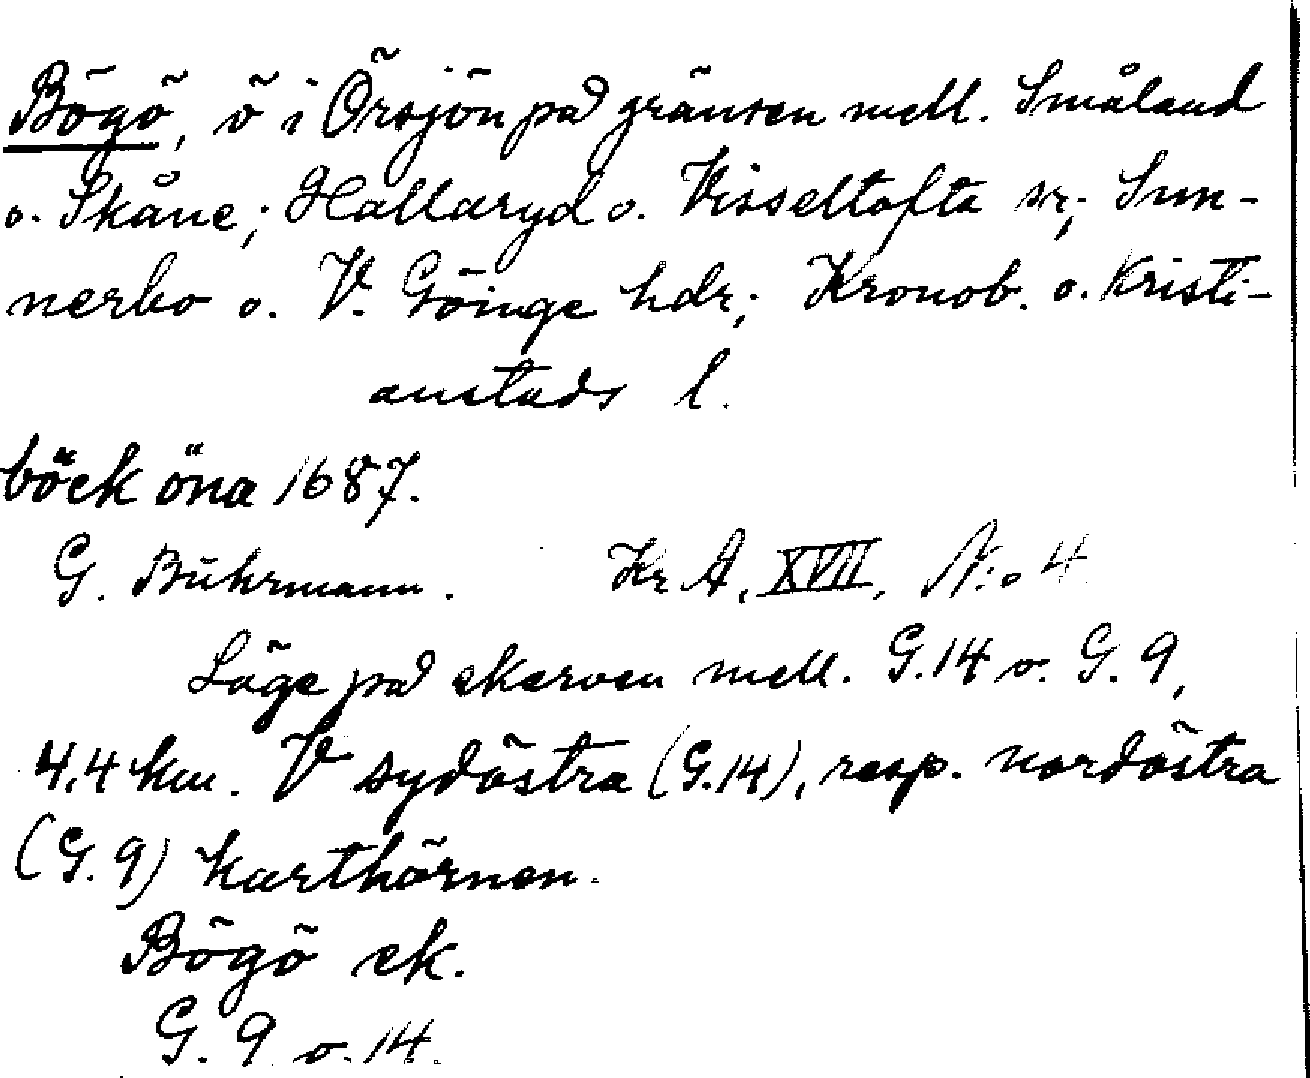 Bögö, ö i Örsjön på gränsen mell. Småland
o. Skåne; Hallaryd o. Visseltofta sr; Sun-
nerbo o. V. Göinge hdr; Kronob. o. Kristi-
anstads l.
böck öna 1687.
G. Buhrmann. Kr A, XVII, N:o 4
Läge på skarven mell. G.14 o. G. 9,
4,4 km. V sydöstra (G.14), resp. nordöstra
(G. 9) karthörnen.
Bögö ek.
G. 9 o. 14.